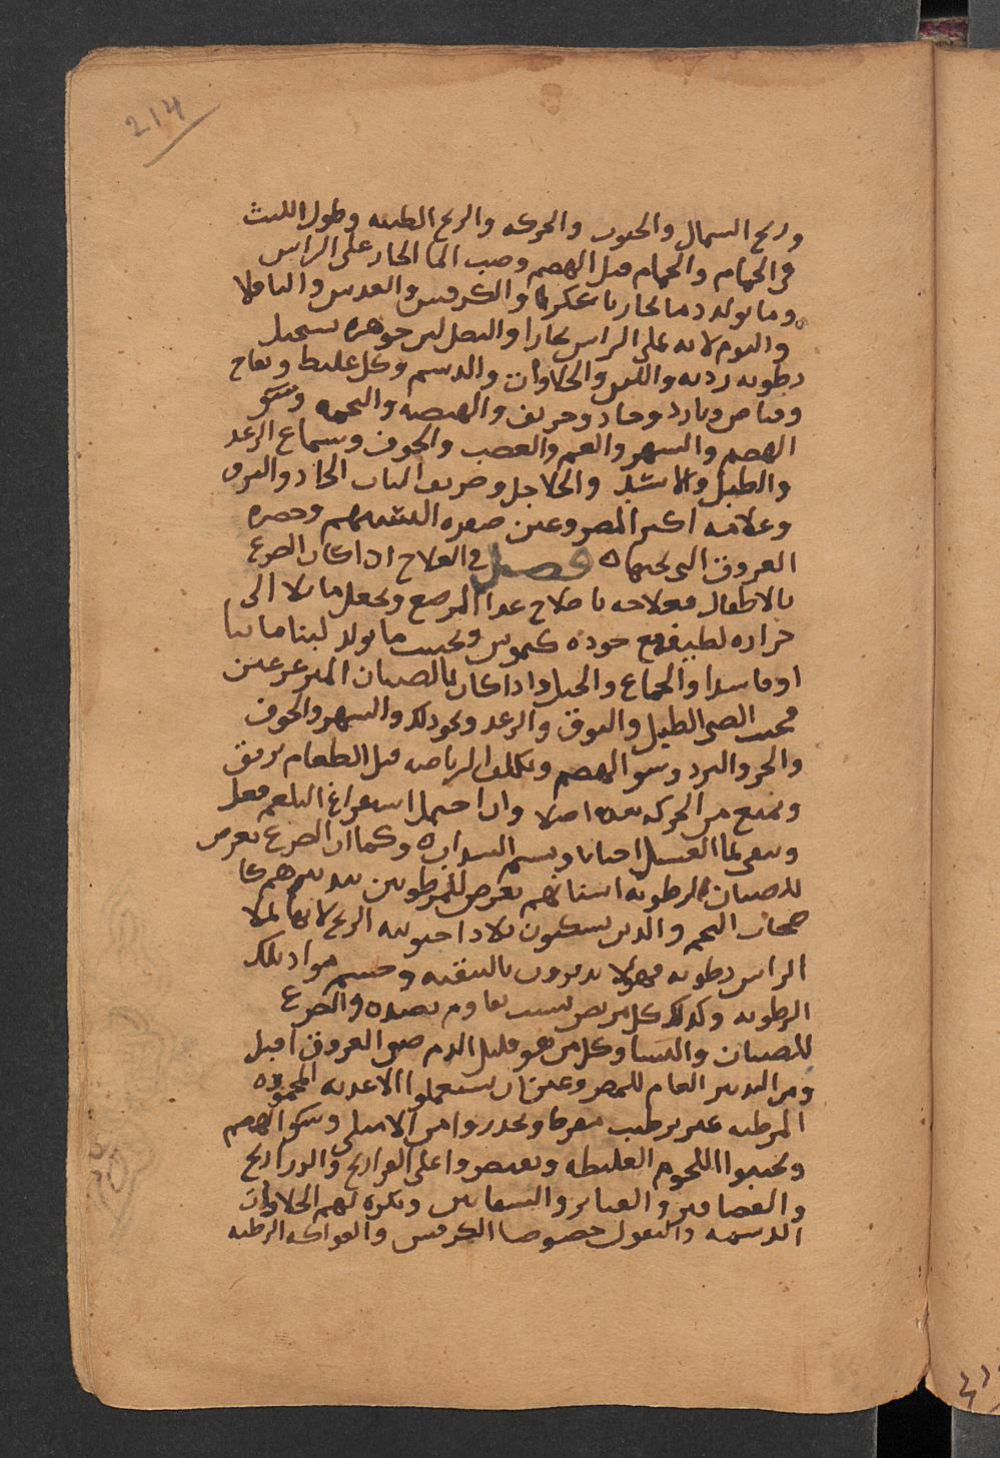 214
وريح السمال والجنوب والحركه والريح الطيبه وطول اللبث
في الحمام والحمام قبل الهضم وصب الما الحار على الراس
وما يولد دما بخاريا عكرا والكرفس والعدس والباقلا
والثوم لانه يملى الراس بخارا والبصل لان جوهره يستحيل
رطوبه رديه واللبن والحلاوات والدسم وكل غليظ ونفاخ
وقابض وبارد وحاد وحريف والهيضه والتخمه وسو
الهضم والسهر والغم والغضب والخوف وسماع الرعد
والطبل والاسد والجلاجل وصريف الباب الحاد والبرق
وعلامه اكثر المصروعين صفره السنتهم وخضره
العروق التي تحتها ه فصل في العلاج ان كان الصرع
بالاطفال فعلاجه باصلاح غدا المرضع وتجعل مايلا الى
حراره لطيفه مع جوده كيموس وتجنب ما يولد لبنا مائيا
او فاسدا والجماع والحبل واذا كان بالصبيان المترعرعين
فجنب الصبي الطبل والبوق والرعد ونحو ذلك والسهر والخوف
والحر والبرد وسو الهضم ويكلف الرياضه قبل الطعام برفق
ويمنع من الحركه بعده اصلا وان احتمل استفراغ البلغم فعل
ويسقى ما العسل احيانا ويشم السداب ه وكما ان الصرع يعرض
للصبيان لرطوبه اسنانهم يعرض للمرطوبين بتدبيرهم كا
صحاب التخم والذين يسكنون بلادا جنوبيه الريح لانها تملا
الراس رطوبه فهولا يدبرون بالتنقيه وحسم مواد تلك
الرطوبه وكذلك كل مريض بسبب يقاوم بضده والصرع
للصبيان والنسا وكل من هو قليل الدم ضيق العروق اقتل
ومن التدبير العام للمصروعين ان يستعملوا الاغذيه المحموده
المرطبه غير ترطيب مفرط ويحذروا من الامتلي وسو الهضم
ويجتنبوا اللحوم الغليظه ويقتصروا على الفراريج والدراريج
والعصافير والقنابر والشفانين وتكره لهم الحلاوات
الدسمه والبقول خصوصا الكرفس والفواكه الرطبه